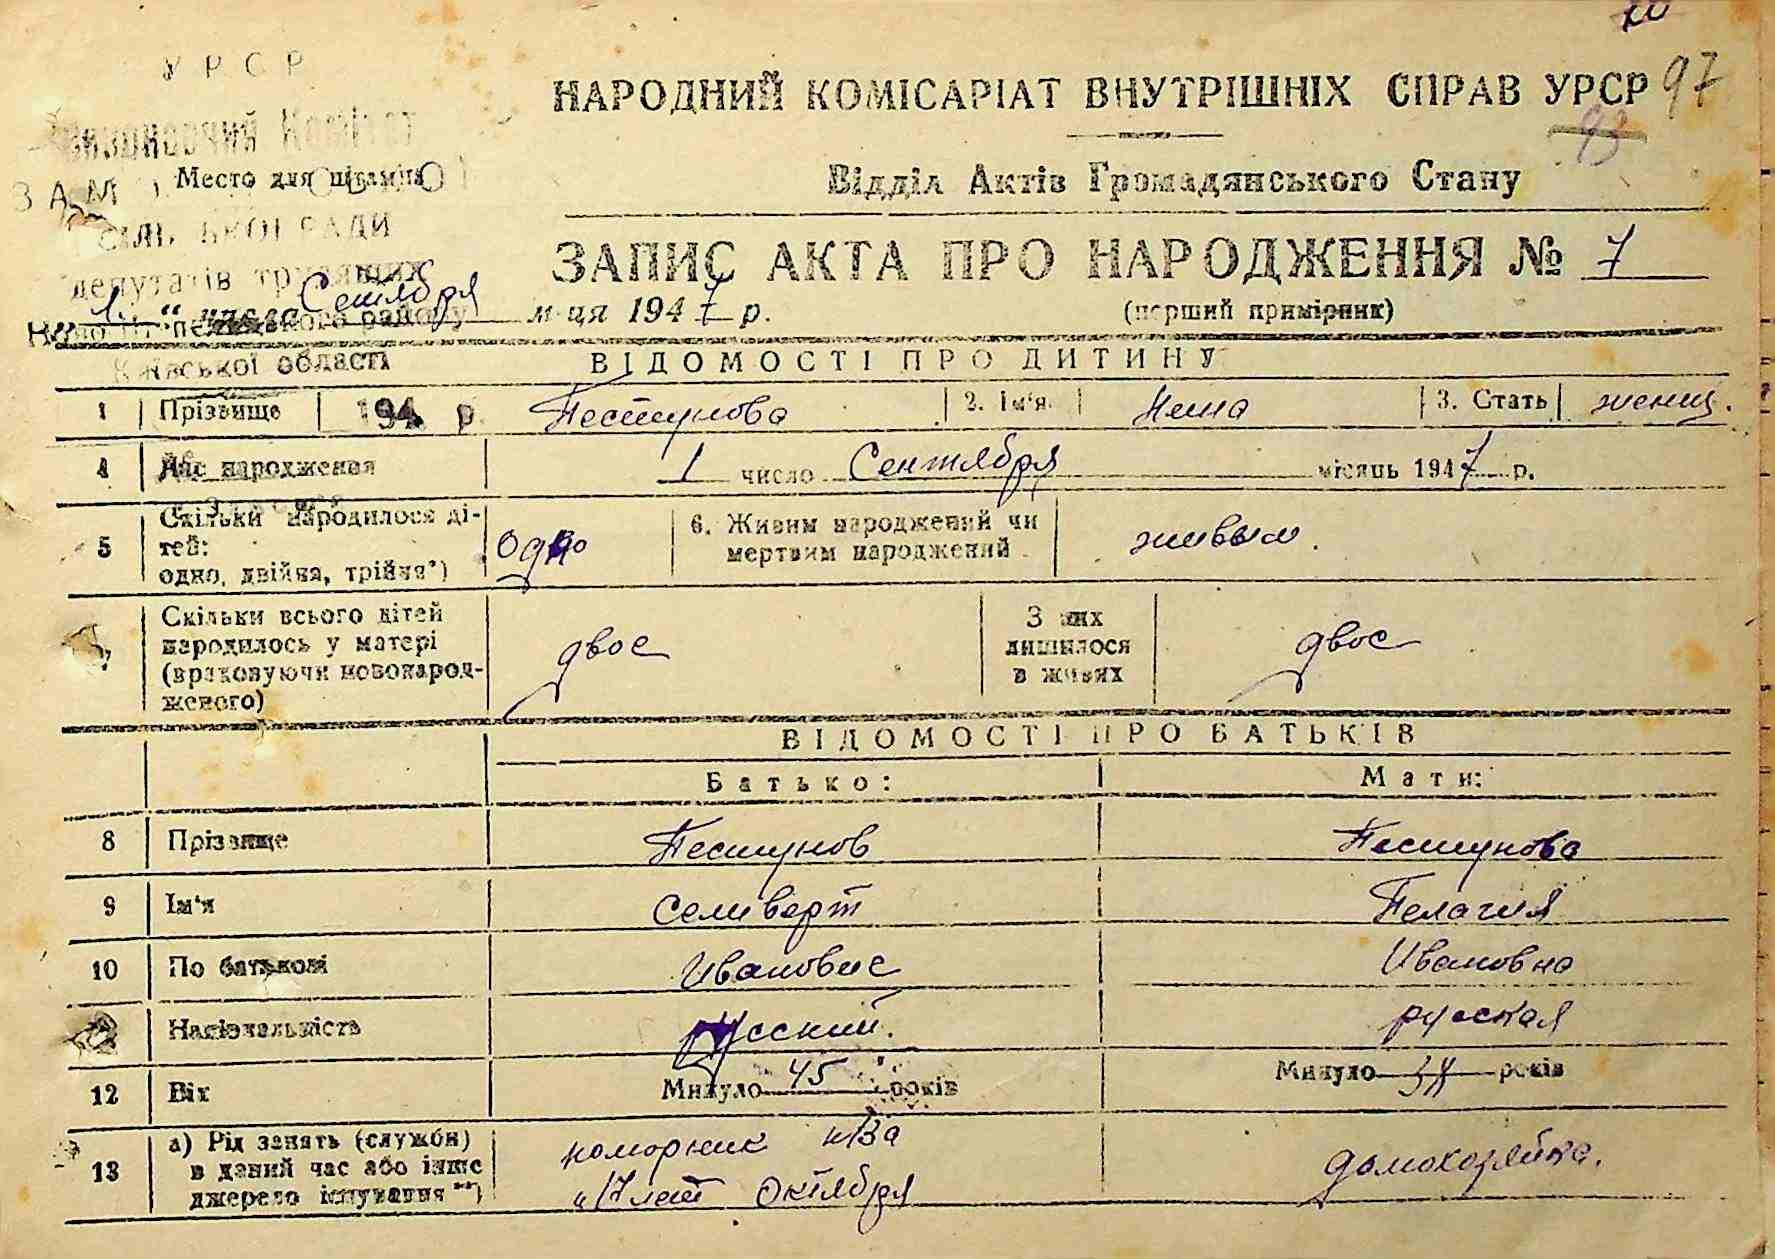 УРСР
97
НАРОДНИЙ КОМІСАРІАТ ВНУТРІШНІХ СПРАВ УРСР
93
Виконавчий Комітет
Место для штампа
Відділ Актів Громадянського Стану
СІЛЬСЬКОЇ РАДИ
ЗАПИС АКТА ПРО НАРОДЖЕННЯ № 7
депутатів трудящих
(перший примірник)
„1“ числа Сентября м-ця 1947 р.
Київської області
ВІДОМОСТІ ПРО ДИТИНУ
194 р
1 Прізвище Пестунова 2. Ім'я Нина 3. Стать женщ.
4 Час народження 1 число Сентября місяць 1947 р.
5 Скільки народилося ді-
тей:
одно, двійня, трійня*) Одно
6. Живим народжений чи
мертвим народжений живым.
7 Скільки всього дітей
народилось у матері
(враховуючи новонарод-
женого) двое
З них
лишилося
в живих двое
ВІДОМОСТІ ПРО БАТЬКІВ
Батько: Мати:
8 Прізвище Пестунов Пестунова
9 Ім'я Селиверт Пелагия
10 По батькові Иванович Ивановна
Національність русский. русская
12 Вік Минуло 45 років Минуло років
13 а) Рід занять (служби)
в даний час або інше
джерело існування **)
к/за
„17 лет Октября
домохозяйка.